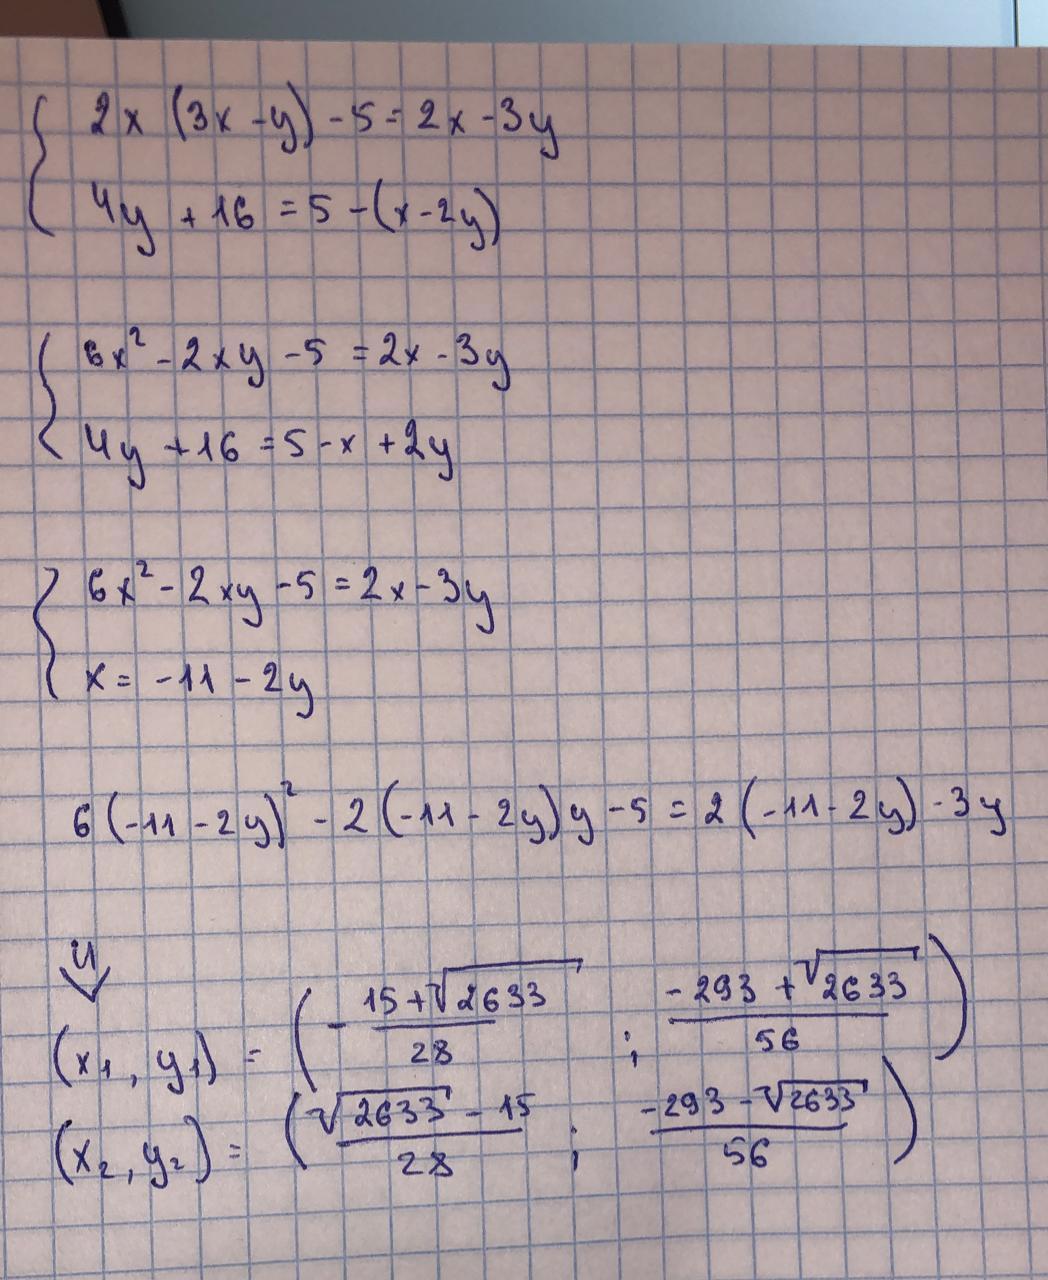 { 2x (3x - y) - 5 = 2x - 3y
4y + 16 = 5 - (x - 2y)
{ 6x² - 2xy - 5 = 2x - 3y
4y + 16 = 5 - x + 2y
{ 6x² - 2xy - 5 = 2x - 3y
x = -11 - 2y
6(-11 - 2y)² - 2(-11 - 2y)y - 5 = 2(-11 - 2y) - 3y
⇓
(x₁, y₁) = (- (15 + √2633)/28 ; (-293 + √2633)/56)
(x₂, y₂) = ((√2633 - 15)/28 ; (-293 - √2633)/56)